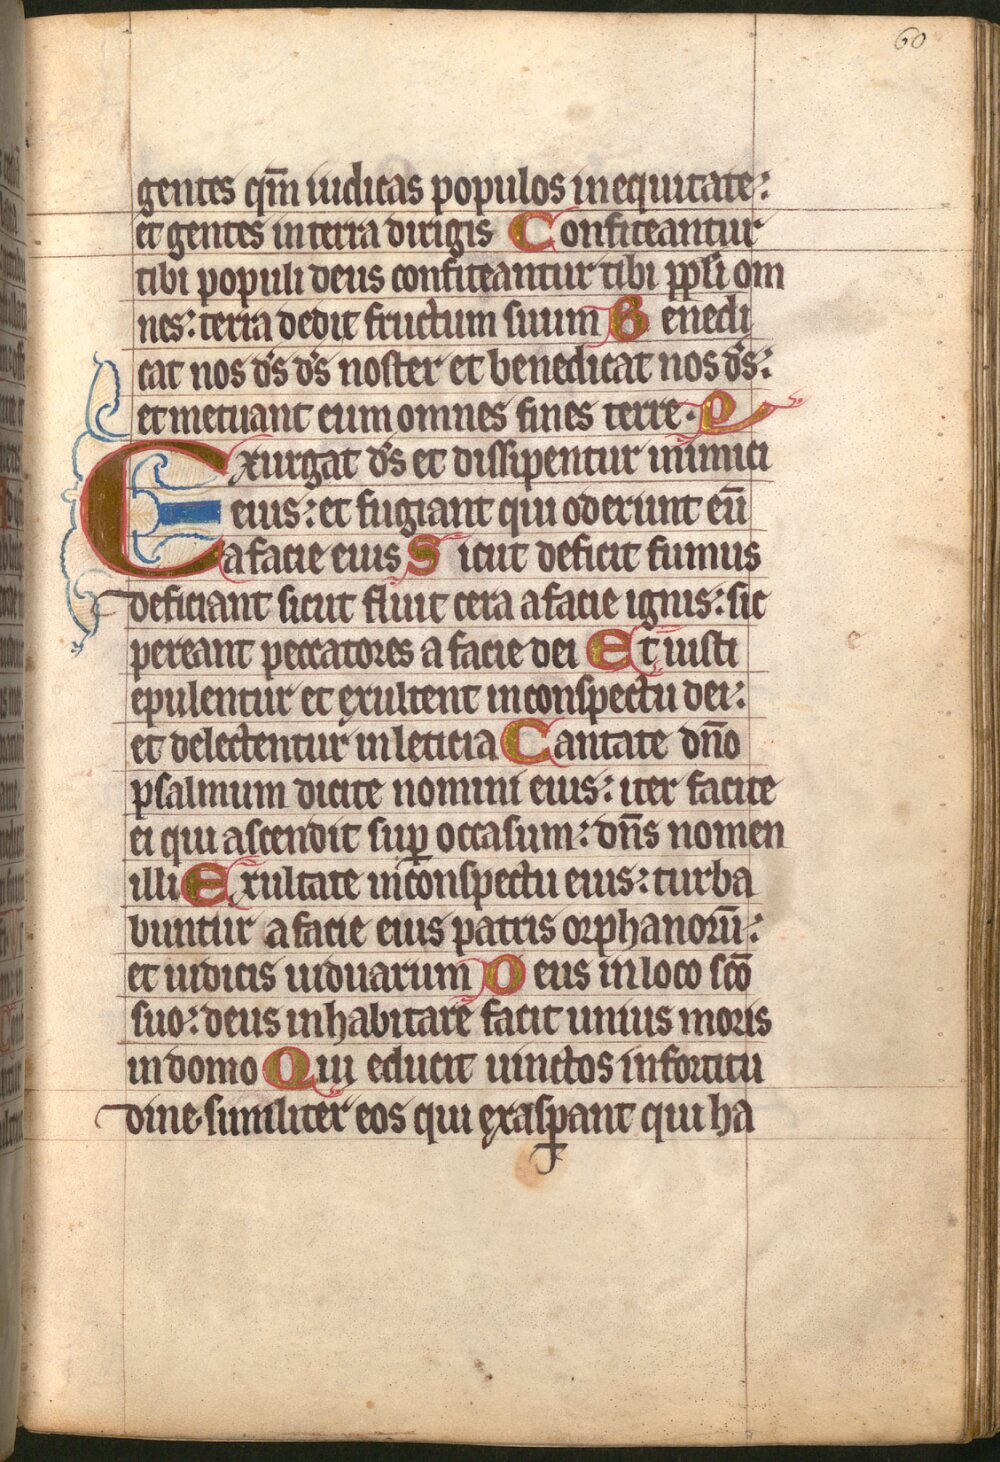 60
gentes qm̄ iudicas populos in equitate:
et gentes in terra dirigis Confiteantur
tibi populi deus confiteantur tibi ppl̄i om
nes: terra dedit fructum suum Benedi
cat nos ds̄ ds̄ noster et benedicat nos ds̄:
et metuant eum omnes fines terre. P
Exurgat ds̄ et dissipentur inimici
eius: et fugiant qui oderunt eū
a facie eius Sicut deficit fumus
deficiant sicut fluit cera a facie ignis: sic
pereant peccatores a facie dei Et iusti
epulentur et exultent in conspectu dei:
et delectentur in leticia Cantate dn̄o
psalmum dicite nomini eius: iter facite
ei qui ascendit sup̱ occasum: dn̄s nomen
illi Exultate in conspectu eius: turba
buntur a facie eius patris orphanorū:
et iudicis uiduarum Deus in loco sc̄o
suo: deus inhabitare facit unius moris
in domo Qui educit uinctos in fortitu
dine similiter eos qui exasp̱ant qui ha